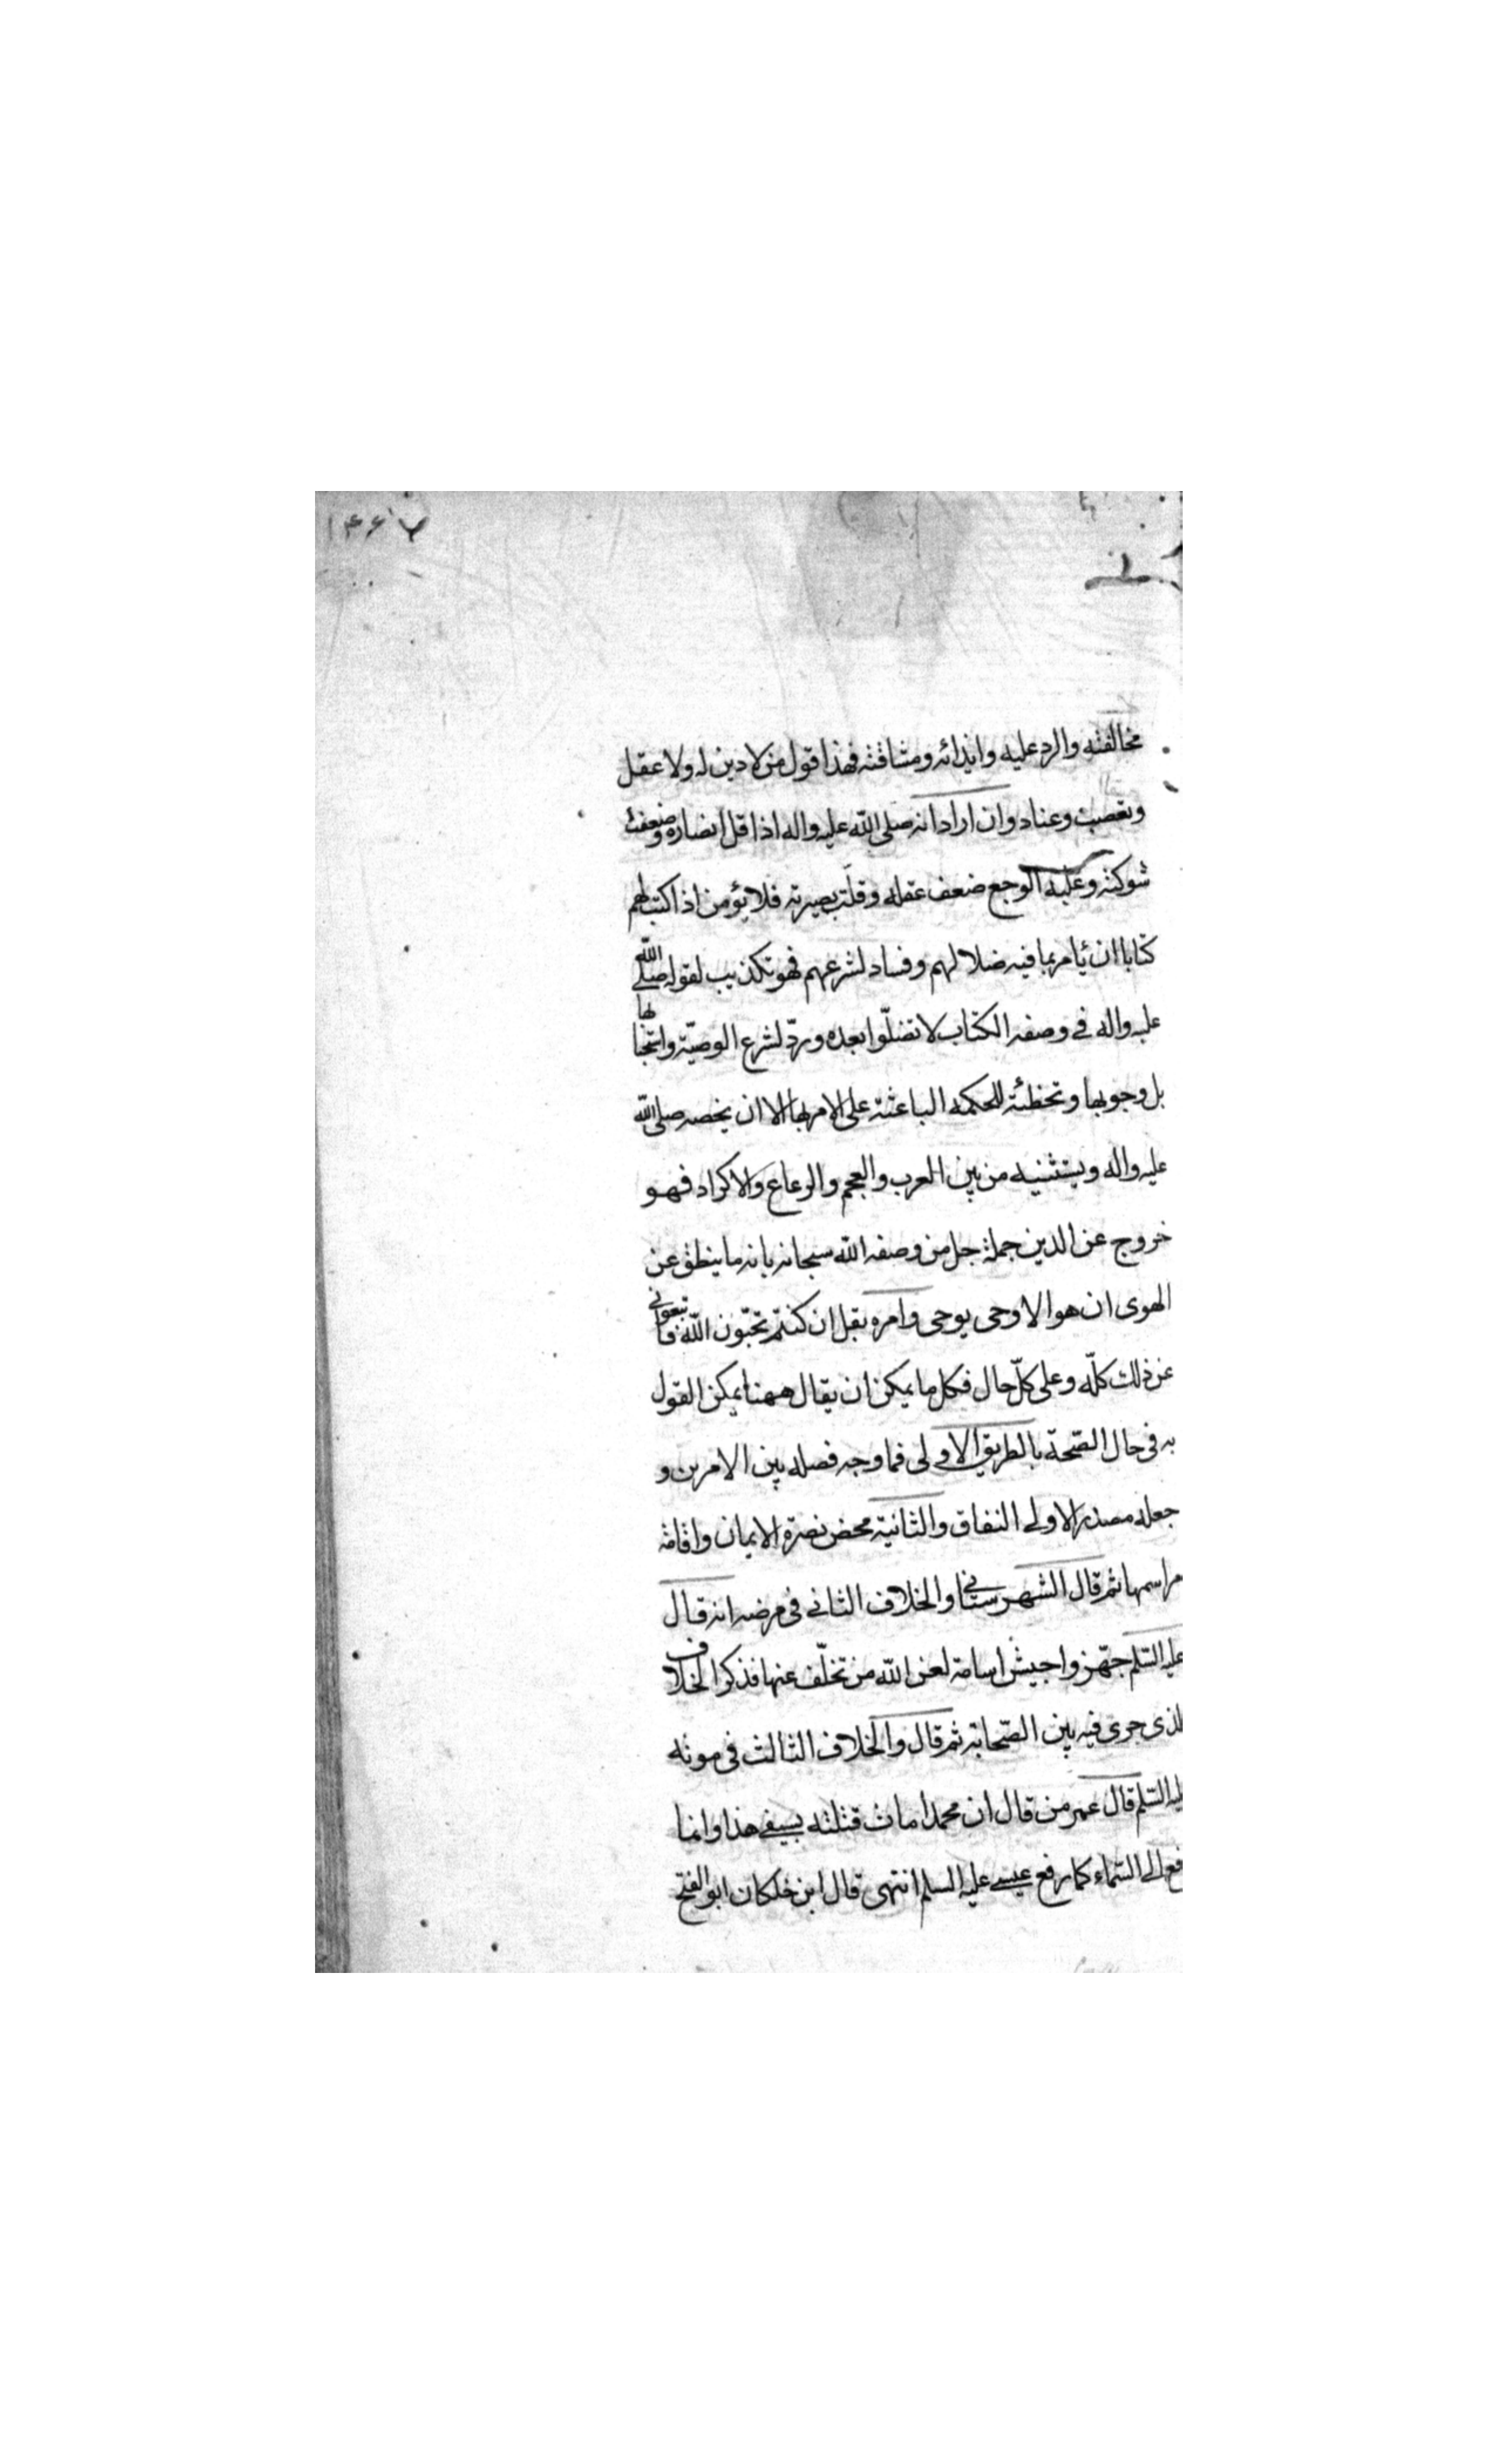 ۱۴۶۷
مخالفته والرد عليه وايذائه ومشاقته فهذا قول من لا دين له ولا عقل
وتعصب وعناد وان اراد انه صلى الله عليه واله اذا قل انصاره وضعفت
شوكته وغلبه الوجع ضعف عقله وقلّت بصيرته فلا يؤمن اذا كتب لهم
كتابا ان يامر بما فيه ضلالهم وفساد لشرعهم فهو تكذيب لقوله صلى الله
عليه واله في وصفه الكتاب لا تضلّوا بعده وردّ لشرع الوصيّة واستحبابها
بل وجوبها وتخطئة للحكمه الباعثة على الامر بها الا ان يخصه صلى الله
عليه واله ويستثنيه من بين العرب والعجم والرعاع والاكراد فهو
خروج عن الدين جملة جل من وصفه الله سبحانه بانه ما ينطق عن
الهوى ان هو الا وحى يوحى وامره بقل ان كنتم تحبّون الله فاتبعونى
عن ذلك كلّه وعلى كلّ حال فكل ما يمكن ان يقال ههنا يمكن القول
به فى حال الصّحة بالطريق الاولى فما وجه فصله بين الامرين و
جعله مصدر الاولى النفاق والثانية محض نصرة الايمان واقامة
مراسمها ثم قال الشهرستانى والخلاف الثانى فى مرضه انه قال
عليه السّلم جهّزوا جيش اسامة لعن الله من تخلّف عنها فذكر الخلاف
لذى جرى فيه بين الصّحابة ثم قال والخلاف الثالث فى موته
ليه السّلم قال عمر من قال ان محمدا مات قتلته بسيفى هذا وانما
فع الى السّماء كما رفع عيسى عليه السلم انتهى قال ابن خلكان ابو الفتح